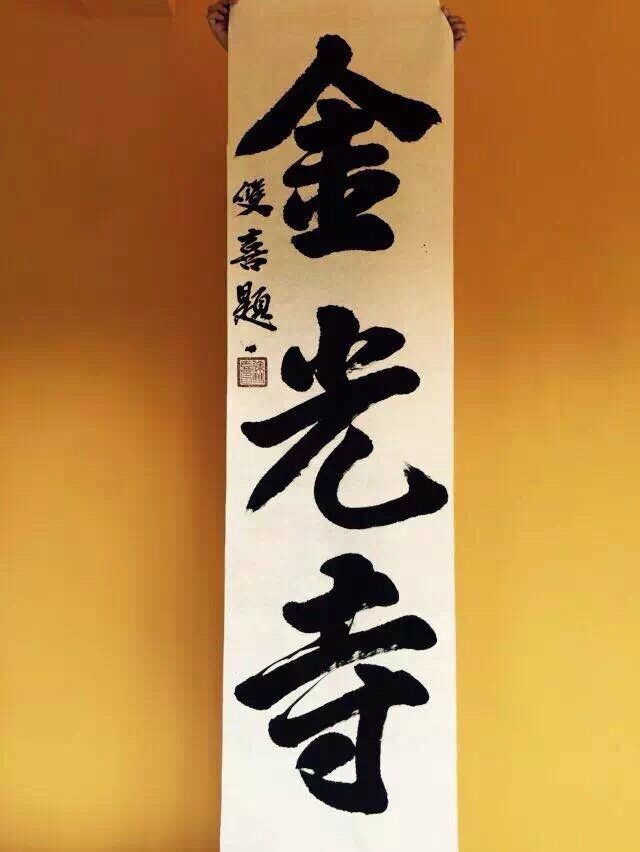 金光寺
雙喜題